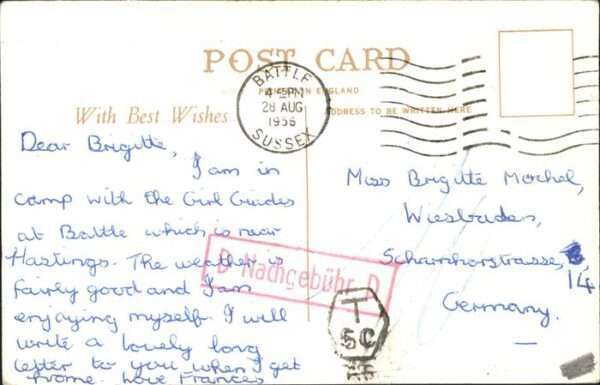 POST CARD
PRINTED IN ENGLAND
With Best Wishes
ADDRESS TO BE WRITTEN HERE
BATTLE
4-PM
28 AUG
1956
SUSSEX
Dear Brigitte,
I am in
camp with the Girl Guides
at Battle which is near
Hastings. The weather is
fairly good and I am
enjoying myself. I will
write a lovely long
letter to you when I get
home. Love Frances
Miss Brigitte Mochel,
Wiesbaden,
Scharnhorstrasse,
14
Germany.
D Nachgebühr D
T
5C